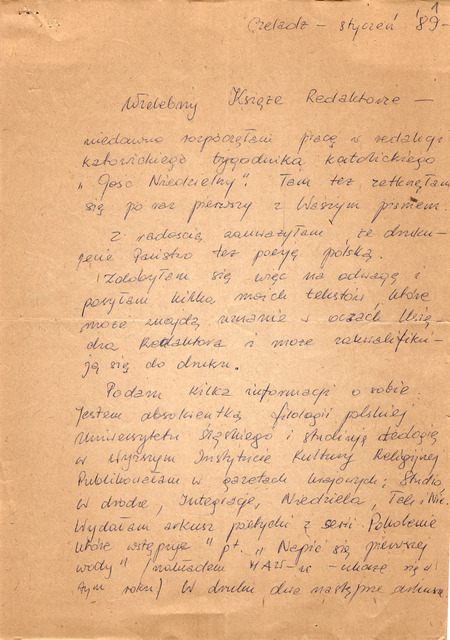 1
Czeladź – styczeń '89 –
Wielebny Księże Redaktorze –
niedawno rozpoczęłam pracę w redakcji
katowickiego tygodnika katolickiego
„Gość Niedzielny". Tam też zetknęłam
się po raz pierwszy z Waszym pismem.
Z radością zauważyłam że druku-
jecie Państwo też poezję polską.
Zdobyłam się więc na odwagę i
posyłam kilka moich tekstów, które
może znajdą uznanie w oczach Księ-
dza Redaktora i może zakwalifiku-
ją się do druku.
Podam kilka informacji o sobie.
Jestem absolwentką filologii polskiej
Uniwersytetu Śląskiego i studiuję teologię
w Wyższym Instytucie Kultury Religijnej
Publikowałam w gazetach krajowych: Studio
W drodze, Integracje, Niedziela, Tak i Nie.
Wydałam arkusz poetycki z serii „Pokolenie
które wstępuje" pt. „Napić się pierwszej
wody" (nakładem - ukaże się w
tym roku) W druku dwa następne arkusze